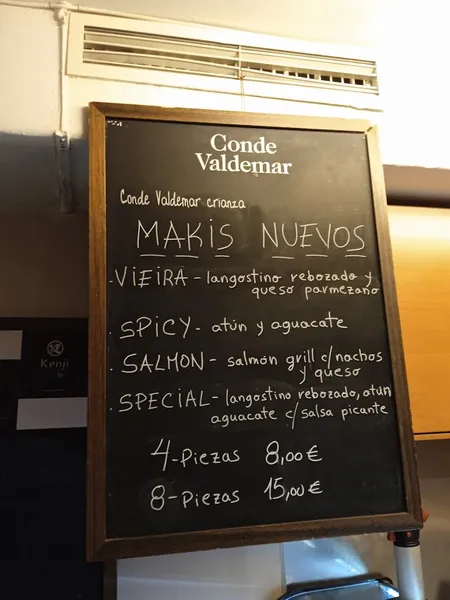 Conde
Valdemar
Conde Valdemar crianza
MAKIS NUEVOS
·VIEIRA - langostino rebozado y
queso parmezano
· SPICY - atún y aguacate
· SALMON - salmón grill c/nachos
y queso
· SPECIAL - langostino rebozado, atún
aguacate c/salsa picante
4-Piezas 8,00€
8-Piezas 15,00€
Kenji